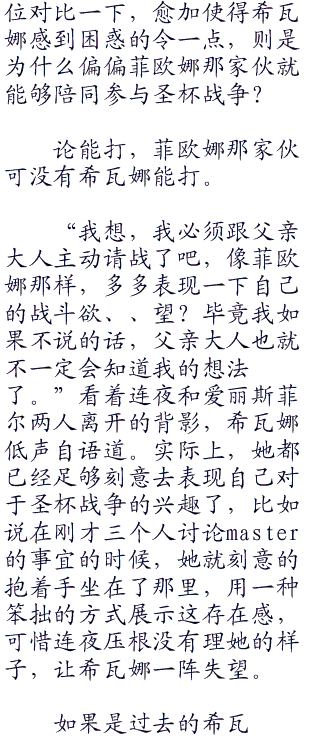 位对比一下，愈加使得希瓦
娜感到困惑的令一点，则是
为什么偏偏菲欧娜那家伙就
能够陪同参与圣杯战争？
论能打，菲欧娜那家伙
可没有希瓦娜能打。
“我想，我必须跟父亲
大人主动请战了吧，像菲欧
娜那样，多多表现一下自己
的战斗欲、、望？毕竟我如
果不说的话，父亲大人也就
不一定会知道我的想法
了。”看着连夜和爱丽斯菲
尔两人离开的背影，希瓦娜
低声自语道。实际上，她都
已经足够刻意去表现自己对
于圣杯战争的兴趣了，比如
说在刚才三个人讨论master
的事宜的时候，她就刻意的
抱着手坐在了那里，用一种
笨拙的方式展示这存在感，
可惜连夜压根没有理她的样
子，让希瓦娜一阵失望。
如果是过去的希瓦